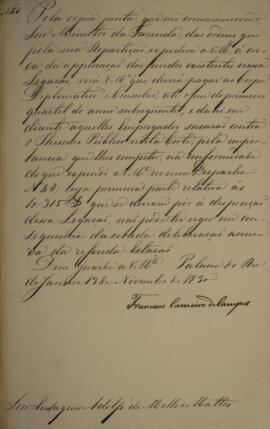 Pela copia junta, que me communicou o
Snr Ministro da Fazenda, da ordem que
pela sua Repartição expedira a V. Mce á cer-
ca da applicação dos fundos existentes nessa
Legação, verá V. Mce que deverá pagar ao Corpo
Diplomatico e Consular, até o fim do primeiro
quartel do anno subsequente, e dahi em
diante aquelles Empregados sacarão contra
o Thesouro Publico nesta Corte, pela impor-
tancia que lhes competir, na conformidade
do que expendi a V. Mce no meu Despacho
cuja primeira parte relativa ás
10:315 £ que se devião pôr á disposição
dessa Legação, não póde ter vigor em con-
sequencia da citada deliberação acer-
ca da referida
Deos Guarde a V. Mce Palacio do Rio
de Janeiro 13 de Novembro de 1830
Francisco Carneiro de Campos
Snr Eustaquio Adolfo de Mello e Mattos